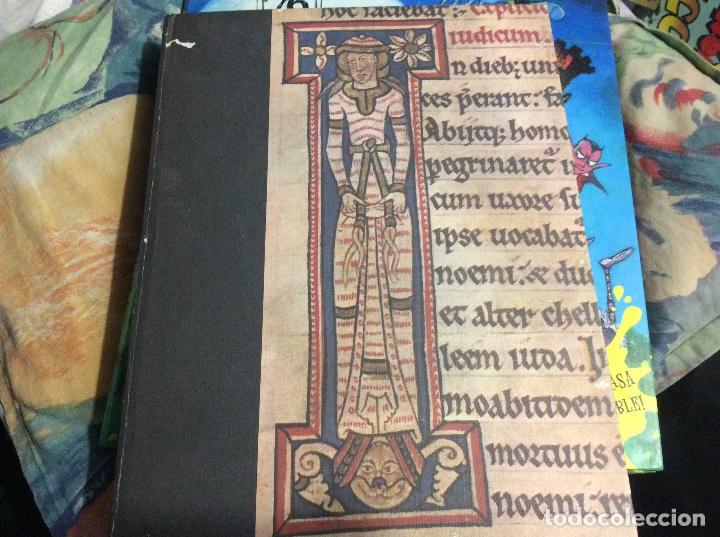 hoc faciebat: Capitul
iudicum.
n dieb; un
ces perant: fa
Abiitq; homo
pegrinaret i
cum uxore su
ipse uocabat
noemi. se duo
et alter chel
leem iuda. In
moabitidem
mortuus e
noemi. re
ASA
BLE!
todocoleccion